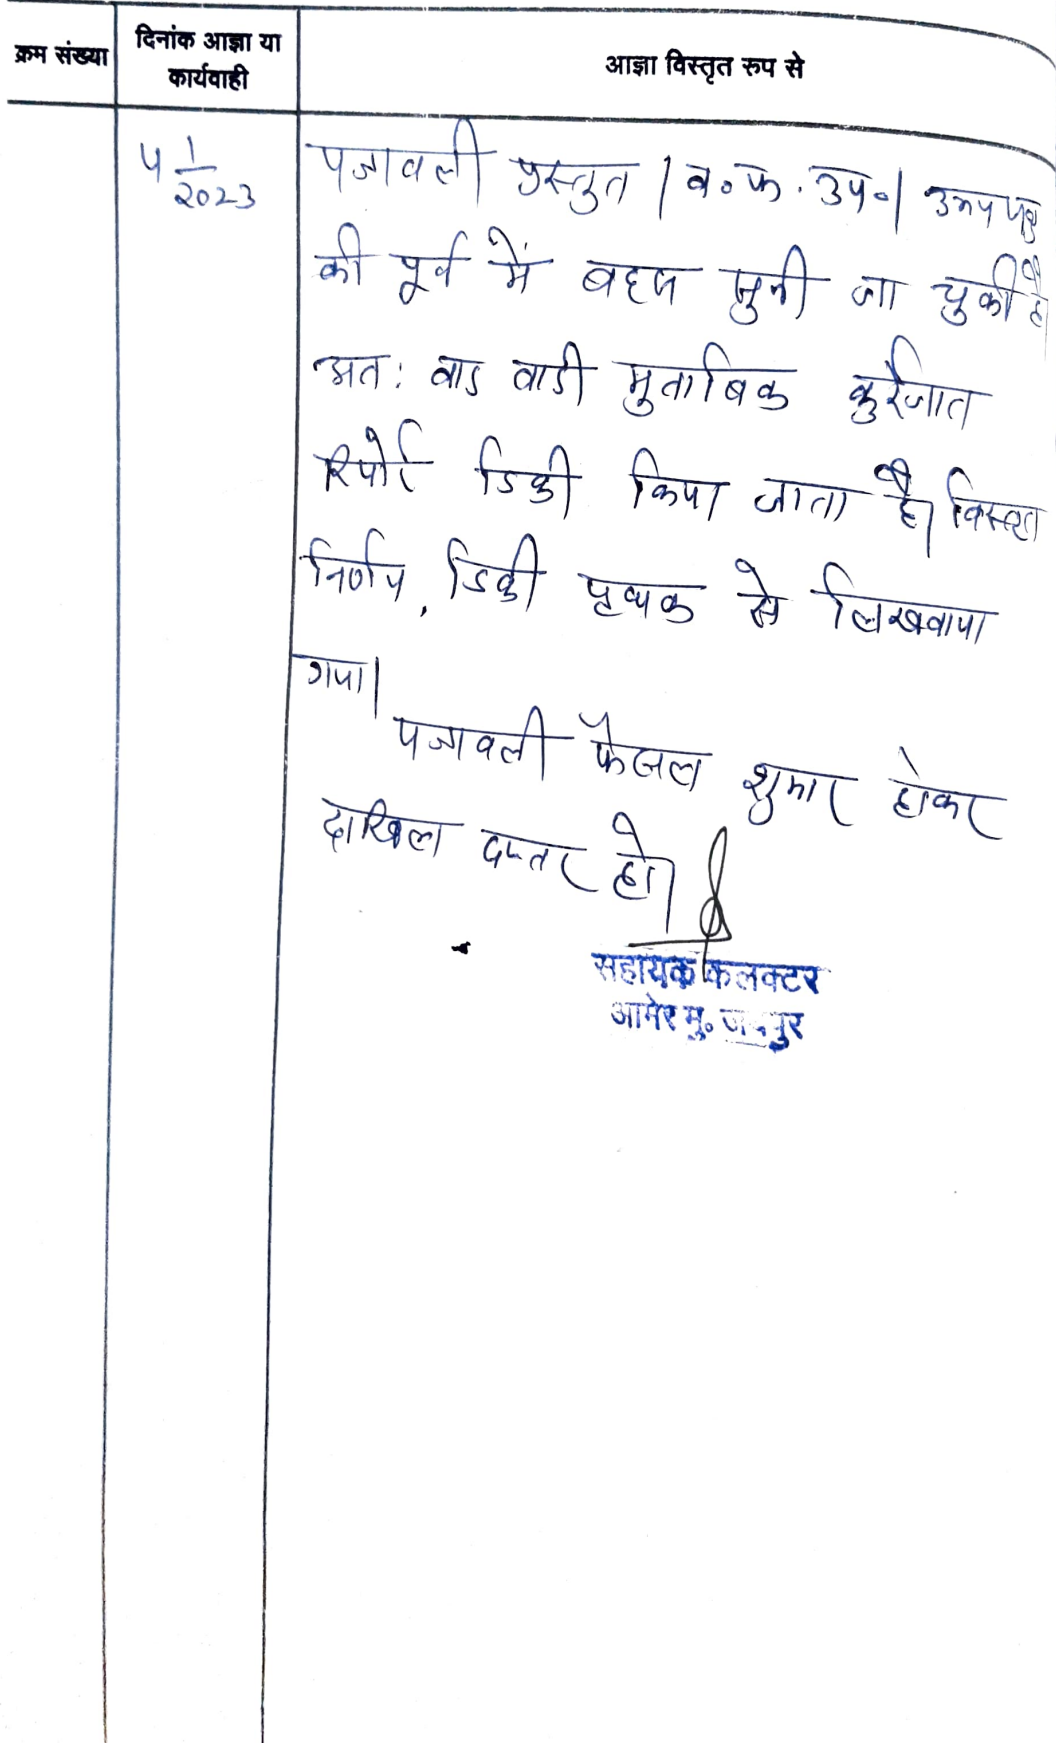 क्रम संख्या
दिनांक आज्ञा या
कार्यवाही
आज्ञा विस्तृत रूप से
4 1/2023
पत्रावली प्रस्तुत । व.फ. उप.। उभयपक्ष
की पूर्व में बहस सुनी जा चुकी है
अत: वाद वादी मुताबिक कुर्रेजात
रिपोर्ट डिक्री किया जाता है। विस्तृत
निर्णय, डिक्री पृथक से लिखवाया
गया।
पत्रावली फैसल शुमार होकर
दाखिल दफ्तर हो।
सहायक कलक्टर
आमेर मु. जयपुर